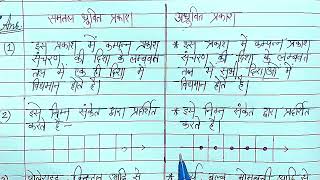 Ans समतल ध्रुवित प्रकाश अध्रुवित प्रकाश
(1) इस प्रकाश में कम्पन्न प्रकाश * इस प्रकाश में कम्पन प्रकाश
संचरण की दिशा के लम्बवत संचरण की दिशा के लम्बवत
तल में एक ही दिशा में तल में सभी दिशाओं में
विद्यमान होते हैं। विद्यमान होते हैं।
2) इसे निम्न संकेत द्वारा प्रदर्शित * इसे निम्न संकेत द्वारा प्रदर्शित
करते हैं- करते हैं-